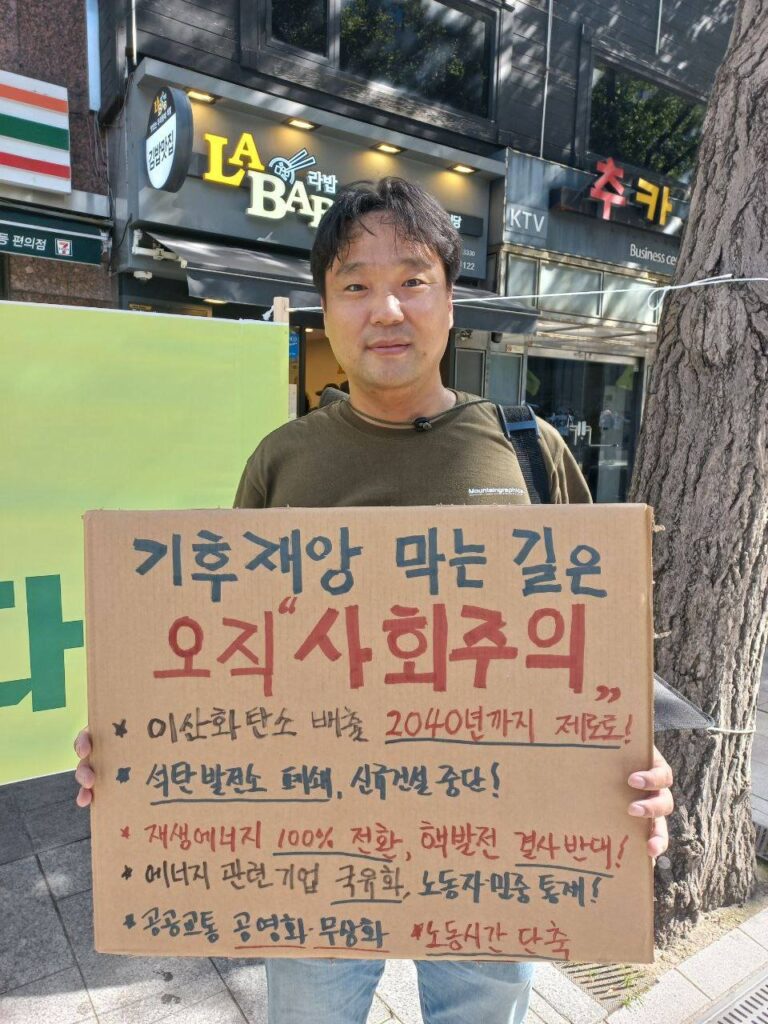 김밥맛집
LA
BAB
라밥
KTV
추카
Business cen
동 편의점
Mountaingraphics
다
기후재앙 막는 길은
오직 "사회주의"
* 이산화탄소 배출 2040년까지 제로로!
* 석탄발전소 폐쇄, 신규건설 중단!
* 재생에너지 100% 전환, 핵발전 결사반대!
* 에너지 관련기업 국유화, 노동자·민중 통제!
* 공공교통 공영화·무상화 *노동시간 단축